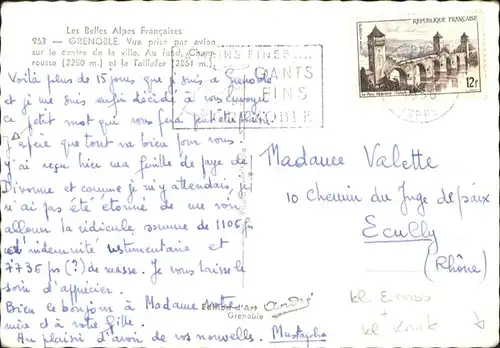 Les Belles Alpes Françaises
963 — GRENOBLE. Vue prise par avion
sur le centre de la ville. Au fond, Cham-
rousse (2250 m.) et le Taillefer (2861 m.)
Voilà plus de 15 jours que je suis à Grenoble
et je me suis enfin décidé à vous envoyer
ce petit mot qui vous fera peut-être plaisir.
J'espère que tout va bien pour vous.
J'ai reçu hier ma feuille de paye de
Divonne et comme je m'y attendais, je
n'ai pas été étonné de me voir
allouer la ridicule somme de 1106 frs
d'indemnité vestimentaire et
7736 frs (?) de masse. Je vous laisse le
soin d'apprécier.
Bien le bonjour à Madame votre
mère et à votre fille.
Au plaisir d'avoir de vos nouvelles. Mustapha
Edition d'Art André
Grenoble
FINES
GANTS
FINS
GRENOBLE
REPUBLIQUE FRANÇAISE
12f
Madame Valette
10 Chemin du Juge de paix
Ecully
(Rhône)
kl.
+
kl. Knick